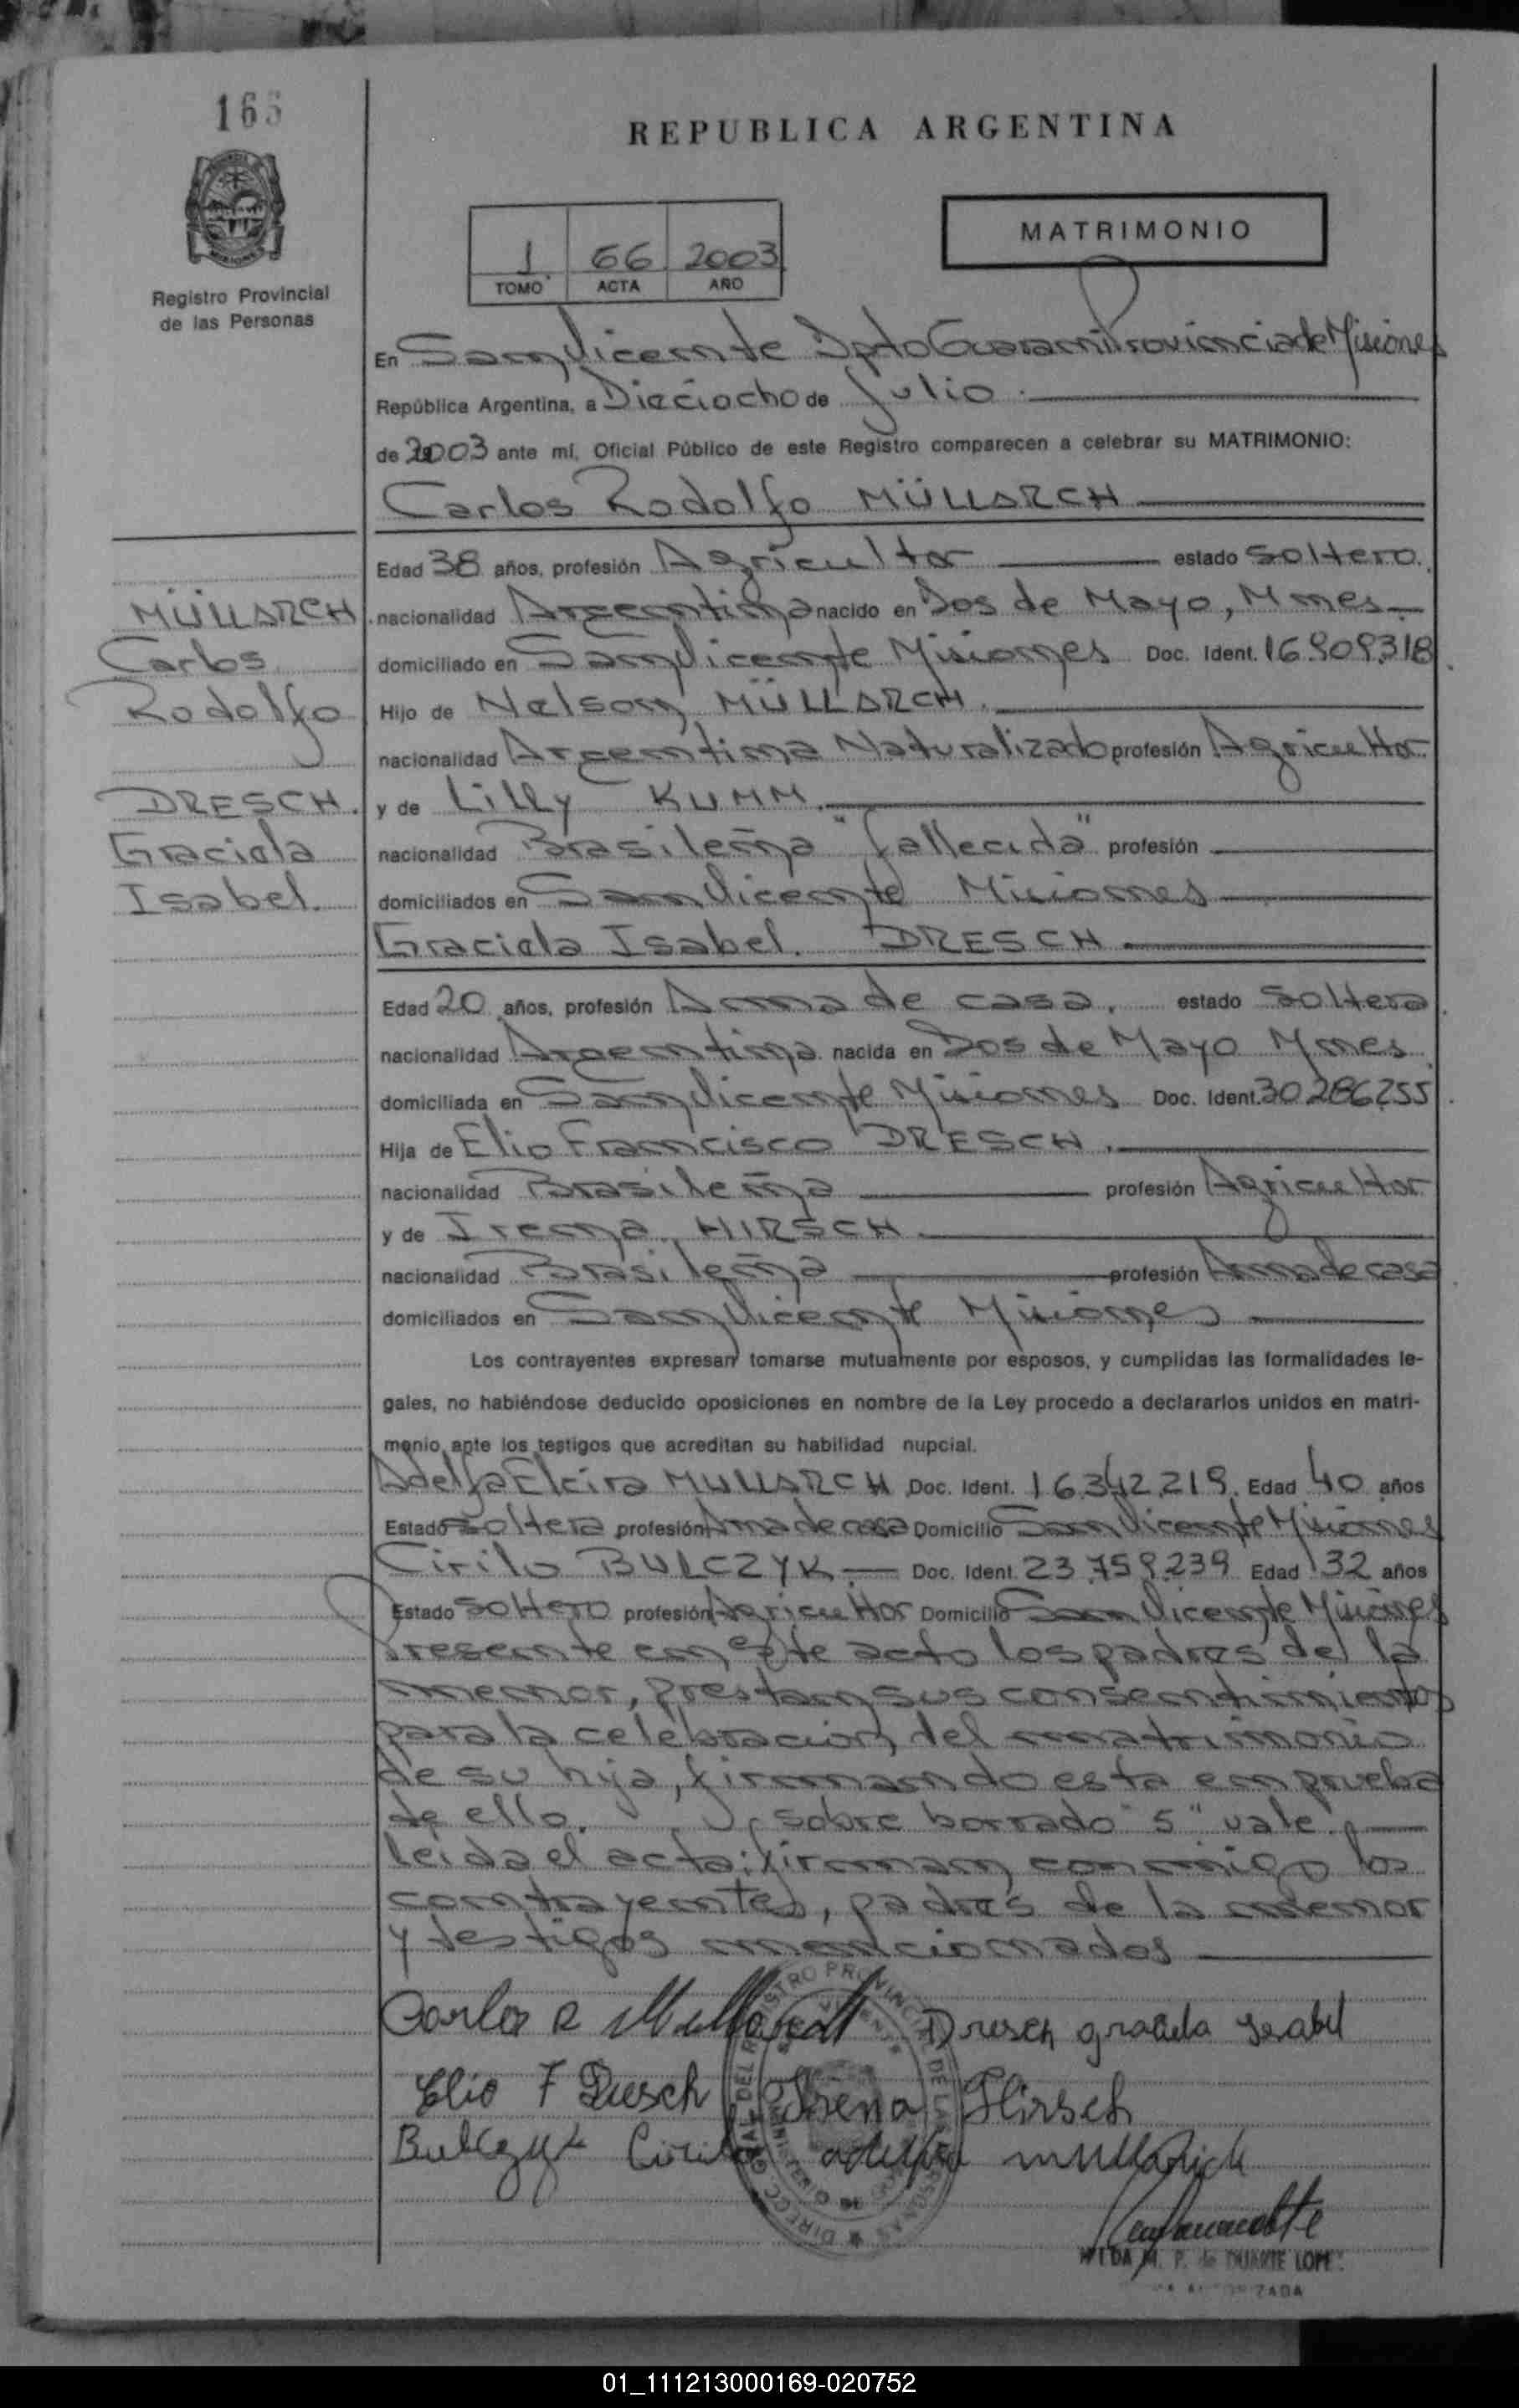 166
REPUBLICA ARGENTINA
MATRIMONIO
1 66 2003
TOMO ACTA AÑO
Registro Provincial
de las Personas
En San Vicente Dpto Guaraní Provincia de Misiones
República Argentina, a Dieciocho de Julio
de 2003 ante mí, Oficial Público de este Registro comparecen a celebrar su MATRIMONIO:
Carlos Rodolfo MÜLLARCH
Edad 38 años, profesión Agricultor estado soltero.
MÜLLARCH
Carlos
Rodolfo
DRESCH.
Graciela
Isabel.
nacionalidad Argentina nacido en Dos de Mayo, Mnes
domiciliado en San Vicente Misiones Doc. Ident. 16.909.318
Hijo de Nelson MÜLLARCH.
nacionalidad Argentina Naturalizado profesión Agricultor
y de Lilly KUMM.
nacionalidad Brasileña "fallecida" profesión
domiciliados en San Vicente Misiones
Graciela Isabel. DRESCH
Edad 20 años, profesión Ama de casa. estado Soltera
nacionalidad Argentina. nacida en Dos de Mayo Mnes
domiciliada en San Vicente Misiones Doc. Ident. 30.286.255
Hija de Elio Francisco DRESCH.
nacionalidad Brasileña profesión Agricultor
y de Irena HIRSCH
nacionalidad Brasileña profesión Ama de casa
domiciliados en San Vicente Misiones
Los contrayentes expresan tomarse mutuamente por esposos, y cumplidas las formalidades le-
gales, no habiéndose deducido oposiciones en nombre de la Ley procedo a declararlos unidos en matri-
monio ante los testigos que acreditan su habilidad nupcial.
Adelfa Elcira MULLARCH Doc. Ident. 16.342.219. Edad 40 años
Estado soltera profesión Ama de casa Domicilio San Vicente Misiones
Cirilo BULCZYK. Doc. Ident. 23.759.239 Edad 32 años
Estado soltero profesión Agricultor Domicilio San Vicente Misiones
Presente en este acto los padres de la
menor, prestan sus consentimientos
para la celebracion del matrimonio
de su hija, firmando esta en prueba
de ello. sobre borrado "5" vale.
Leida el acta; firman conmigo los
contrayentes, padres de la menor
y testigos mencionados
Carlos R Mullarch Dresch graciela Isabel
Elio F Dresch Irena Hirsch
Bulczyk Cirilo adelfa mullarich
DIRECC GRAL DEL REGISTRO PROVINCIAL DE LAS PERSONAS
M. P. de DUARTE LOPEZ
01_111213000169-020752